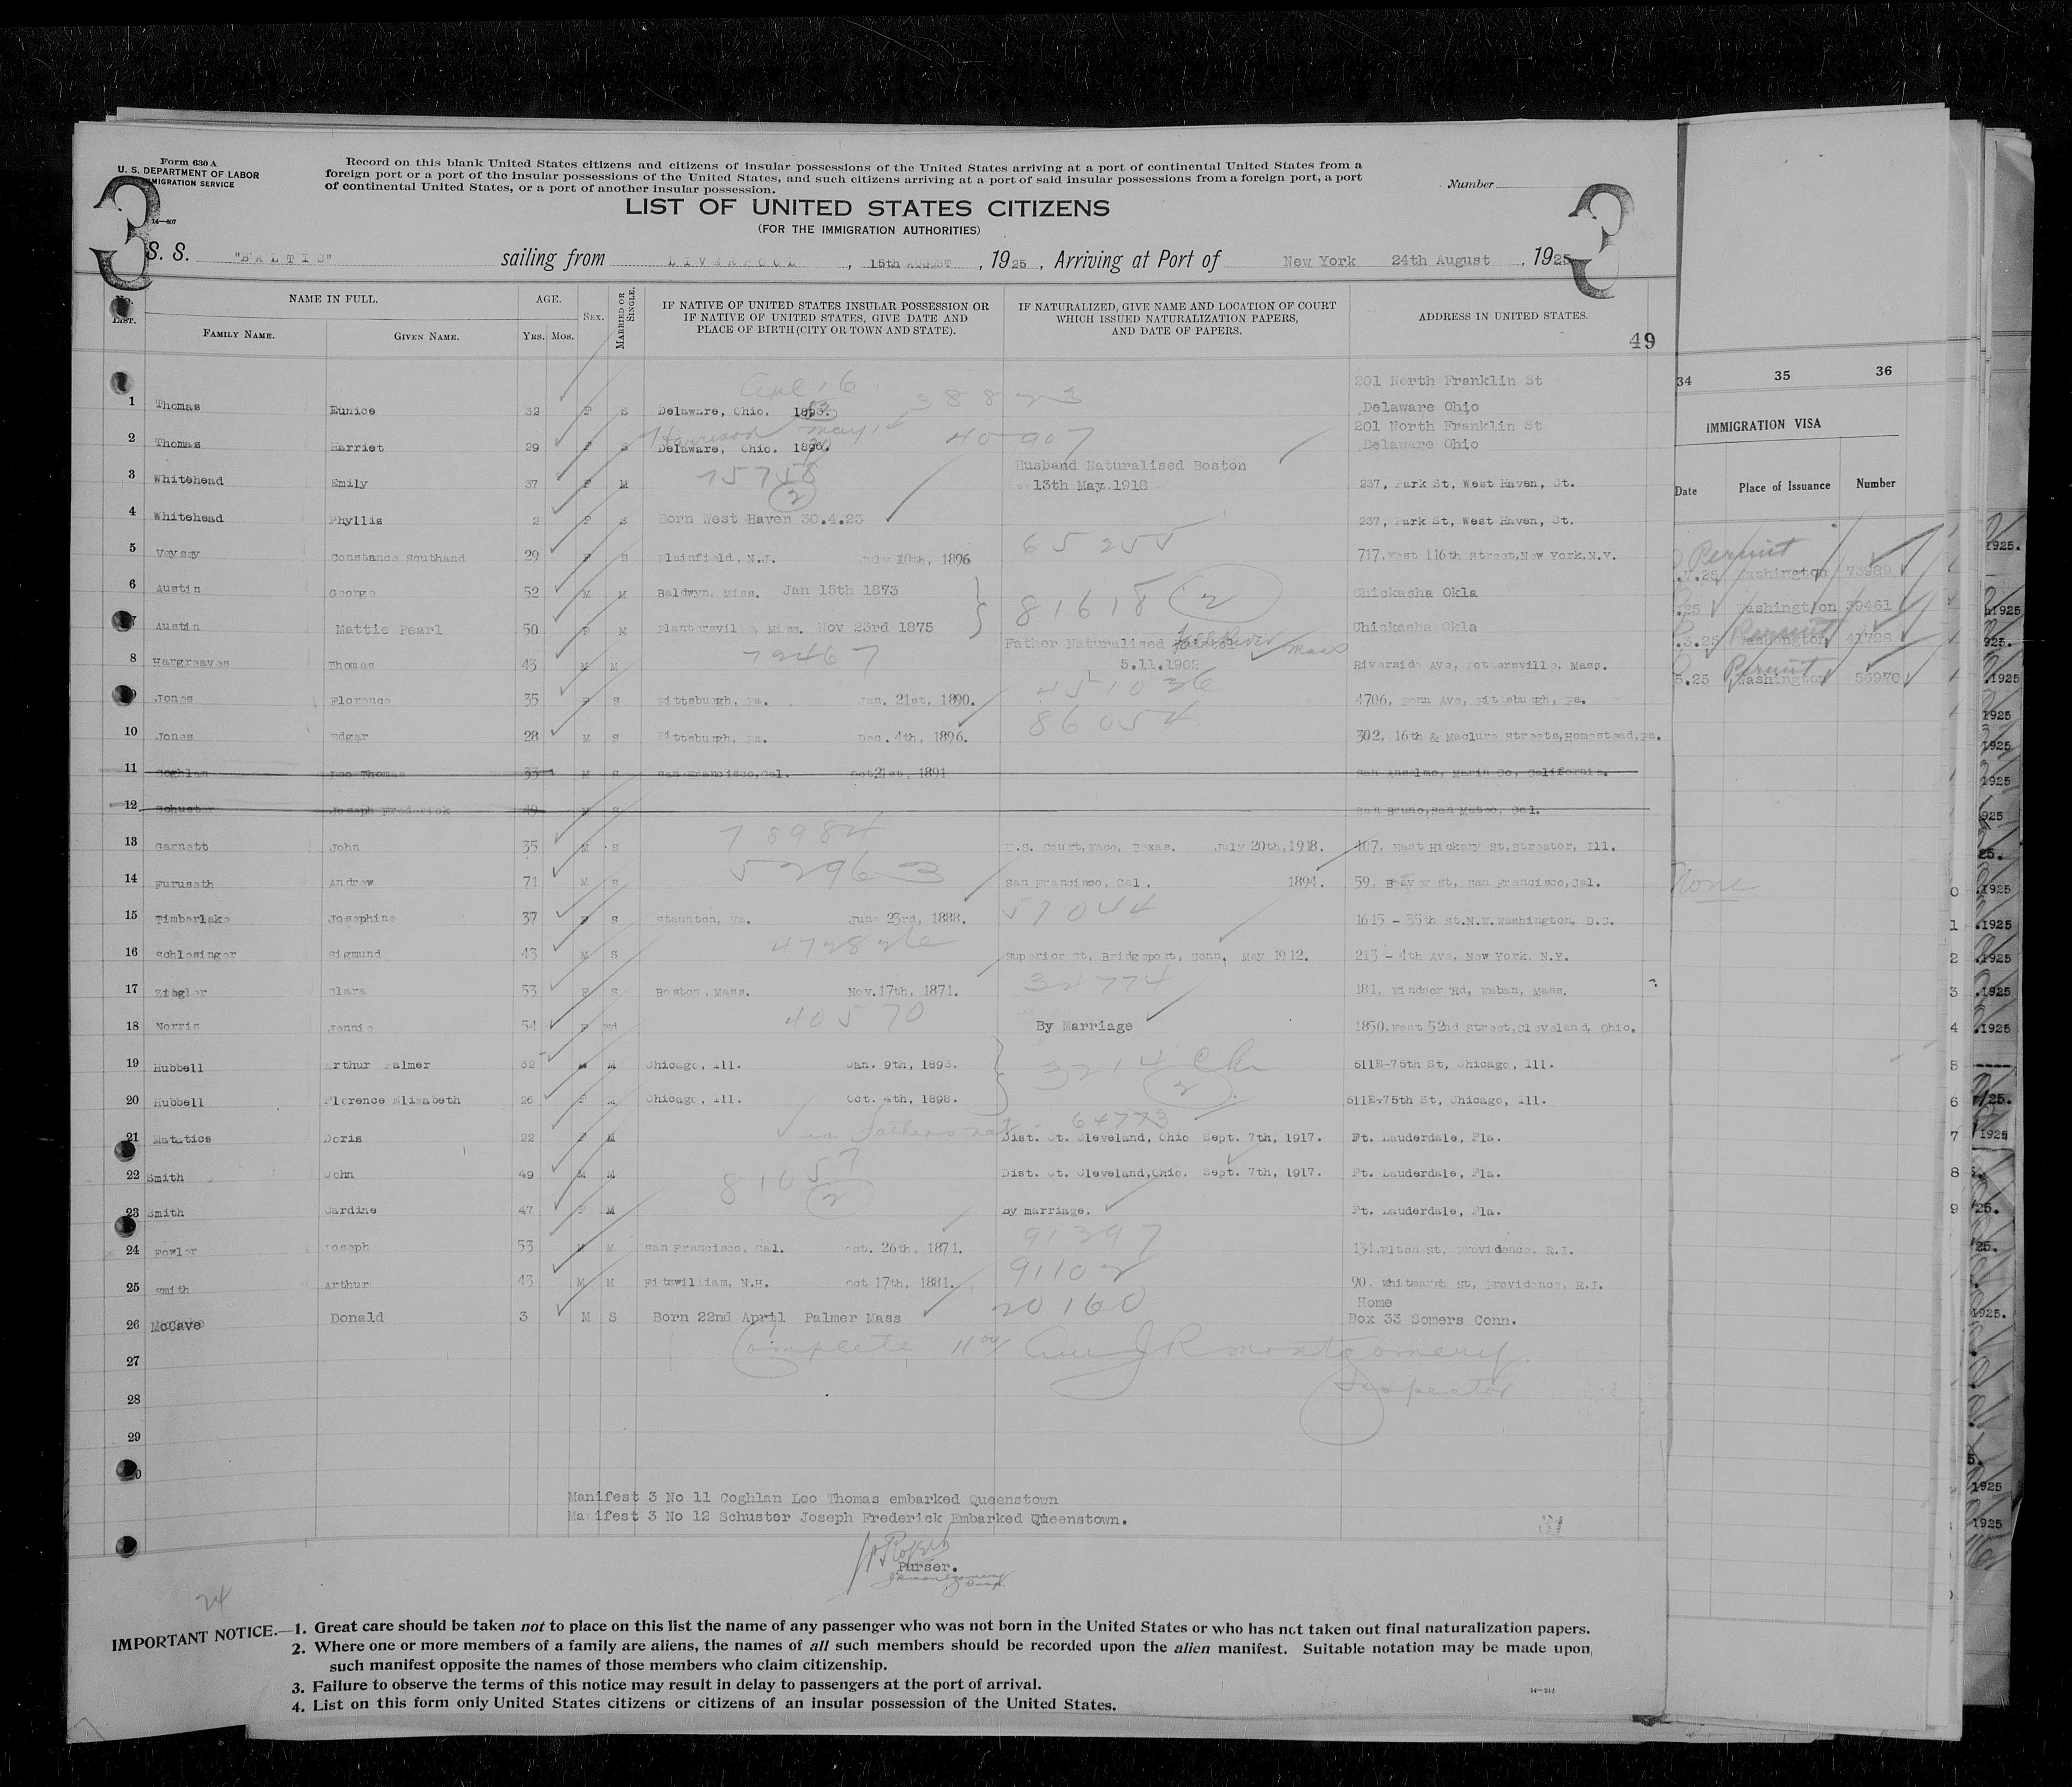 Form 630 A
U. S. DEPARTMENT OF LABOR
IMMIGRATION SERVICE
14—607
3
Record on this blank United States citizens and citizens of insular possessions of the United States arriving at a port of continental United States from a
foreign port or a port of the insular possessions of the United States, and such citizens arriving at a port of said insular possessions from a foreign port, a port
of continental United States, or a port of another insular possession.
Number
3
LIST OF UNITED STATES CITIZENS
(FOR THE IMMIGRATION AUTHORITIES)
S. S. "BALTIC" sailing from LIVERPOOL, 15th AUGUST, 1925, Arriving at Port of New York 24th August, 1925
LIST. NAME IN FULL. AGE. SEX. MARRIED OR SINGLE. IF NATIVE OF UNITED STATES INSULAR POSSESSION OR IF NATIVE OF UNITED STATES, GIVE DATE AND PLACE OF BIRTH (CITY OR TOWN AND STATE). IF NATURALIZED, GIVE NAME AND LOCATION OF COURT WHICH ISSUED NATURALIZATION PAPERS, AND DATE OF PAPERS. ADDRESS IN UNITED STATES.
FAMILY NAME. GIVEN NAME. YRS. MOS.
49
April 16 38823 201 North Franklin St
1 Thomas Eunice 32 F S Delaware, Ohio. 1893. Delaware Ohio
Harrison May 14 40907 201 North Franklin St
2 Thomas Harriet 29 F S Delaware, Ohio. 1896. Delaware Ohio
75758 Husband Naturalised Boston
3 Whitehead Emily 37 F M (2) 13th May.1918 237, Park St, West Haven, Ct.
4 Whitehead Phyllis 2 F S Born West Haven 30.4.23 237, Park St, West Haven, Ct.
65255
5 Veysey Constance Southand 29 F S Plainfield, N.J. July 10th, 1896 717, West 116th Street, New York, N.Y.
6 Austin George 52 M M Baldwyn, Miss. Jan 15th 1873 81618 (2) Chickasha Okla
7 Austin Mattie Pearl 50 F M Plantersville, Miss. Nov 23rd 1875 Chickasha Okla
Father Naturalised Fall River Mass
8 Hargreaves Thomas 43 M M 79467 5.11.1902 Riverside Ave, Pottersville, Mass.
451036
9 Jones Florence 35 F S Pittsburgh, Pa. Jan. 21st, 1890. 4706, Penn Ave, Pittsburgh, Pa.
86054
10 Jones Edgar 28 M S Pittsburgh, Pa. Dec. 4th, 1896. 302, 16th & Maclure Streets, Homestead, Pa.
11 Coghlan Leo Thomas 33 M S San Francisco, Cal. Oct 21st, 1891 San Anselmo, Marin Co, California.
12 Schuster Joseph Frederick 49 M S San Bruno, San Mateo, Cal.
78984
13 Garnett John 35 M S U.S. Court, Waco, Texas. July 20th, 1918. 407, East Hickory St, Streator, Ill.
52963
14 Furuseth Andrew 71 M S San Francisco, Cal. 1894. 59, St, San Francisco, Cal.
57044
15 Timberlake Josephine 37 F S Staunton, Va. June 23rd, 1888. 1615 - 35th St.N.W. Washington, D.C.
16 Schlesinger Sigmund 43 M S Superior Ct, Bridgeport, Conn, May 1912. 213 - 4th Ave, New York, N.Y.
17 Ziegler Clara 53 F S Boston, Mass. Nov. 17th, 1871. 34774 181, Windsor Rd, Waban, Mass.
40570
18 Norris Jennie 54 F Wd By Marriage 1850, West 52nd Street, Cleveland, Ohio.
19 Hubbell Arthur Palmer 32 M M Chicago, Ill. Jan. 9th, 1893. 3214 (2) 511E-75th St, Chicago, Ill.
20 Hubbell Florence Elizabeth 26 F M Chicago, Ill. Oct. 4th, 1898. 511E-75th St, Chicago, Ill.
64773
21 Doris 22 F M via fathers nat Dist. Ct. Cleveland, Ohio Sept. 7th, 1917. Ft. Lauderdale, Fla.
22 Smith John 49 M M 81057 (2) Dist. Ct. Cleveland, Ohio. Sept. 7th, 1917. Ft. Lauderdale, Fla.
23 Smith Cardine 47 F M By marriage. Ft. Lauderdale, Fla.
91397
24 Fowler Joseph 53 M M San Francisco, Cal. Oct. 26th, 1871. 134, Elton St, Providence, R.I.
91102
25 Smith Arthur 43 M M Fitzwilliam, N.H. Oct 17th, 1881. 90, Whitmarsh St, Providence, R.I.
Home
26 McCave Donald 3 M S Born 22nd April Palmer Mass 20160 Box 33 Somers Conn.
27 Complete J R Montgomery
28 Inspector
29
30
Manifest 3 No 11 Coghlan Leo Thomas embarked Queenstown
Manifest 3 No 12 Schuster Joseph Frederick Embarked Queenstown.
31
Purser.
24
IMPORTANT NOTICE.—1. Great care should be taken not to place on this list the name of any passenger who was not born in the United States or who has not taken out final naturalization papers.
2. Where one or more members of a family are aliens, the names of all such members should be recorded upon the alien manifest. Suitable notation may be made upon
such manifest opposite the names of those members who claim citizenship.
3. Failure to observe the terms of this notice may result in delay to passengers at the port of arrival.
4. List on this form only United States citizens or citizens of an insular possession of the United States.
34 35 36
IMMIGRATION VISA
Date Place of Issuance Number
Permit
.7.25 Washington 73980
.25 Washington 39461
.3.25 Washington 41728
Permit
5.25 Washington 56970
None